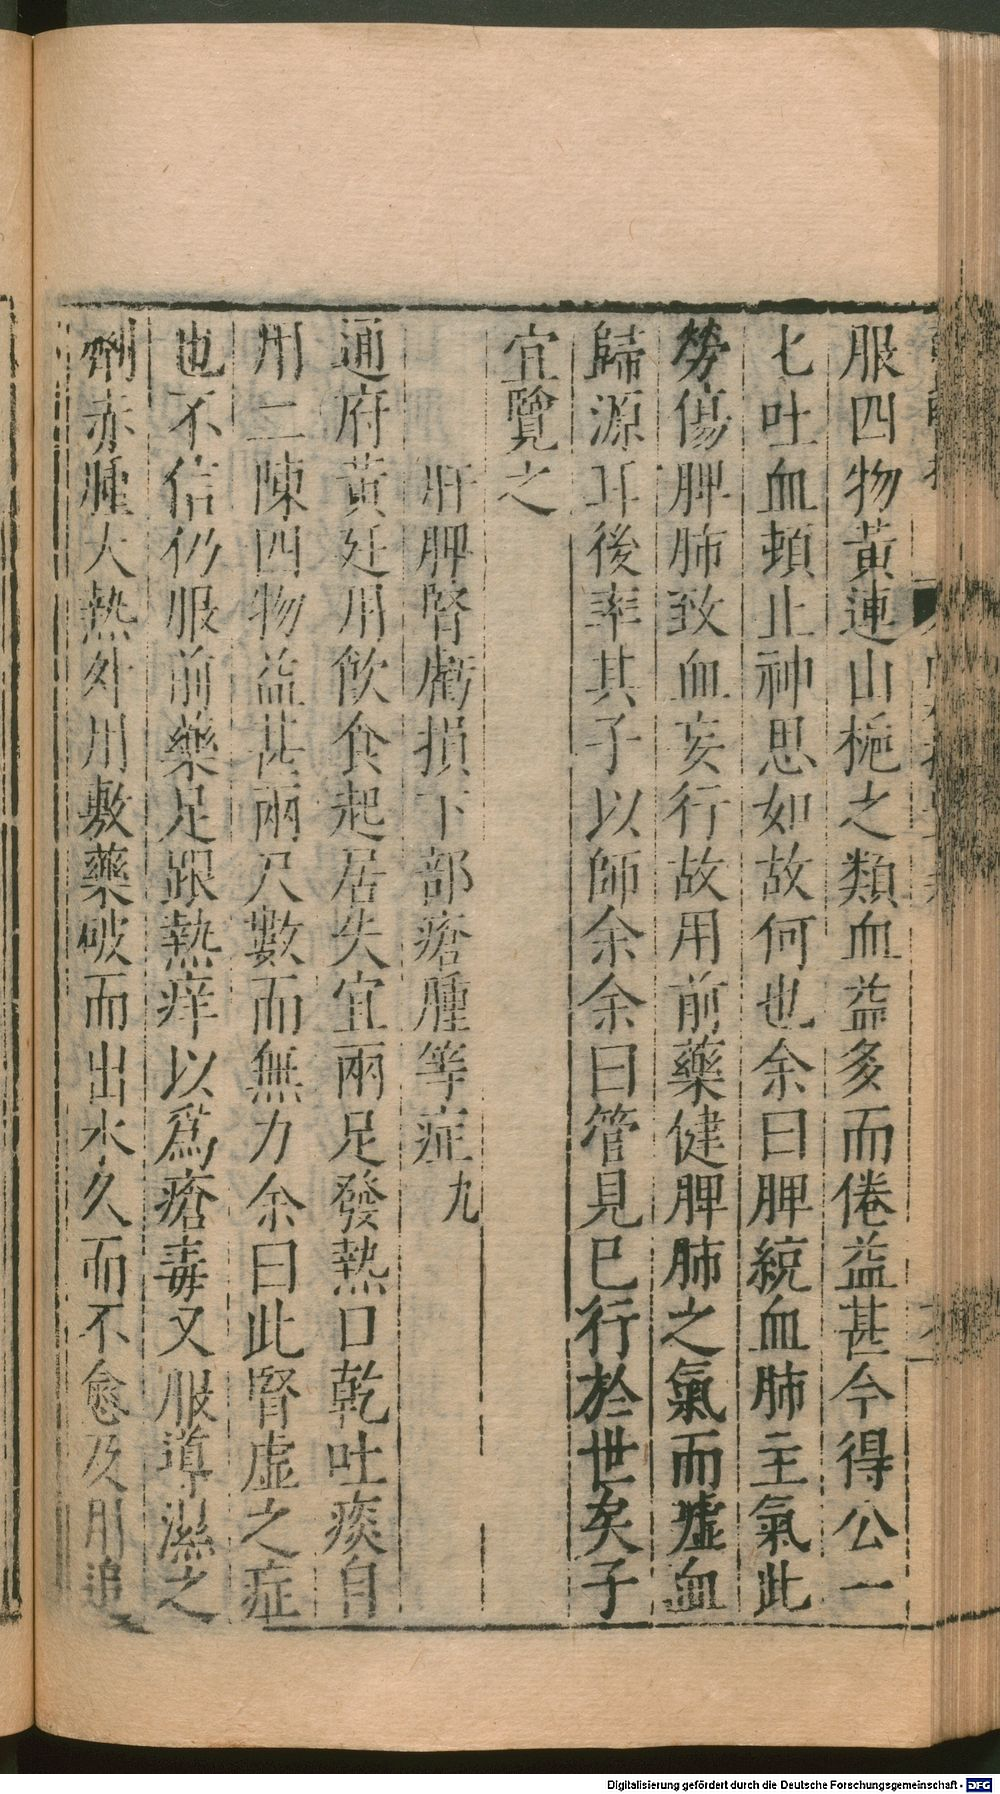 服四物黃連山梔之類血益多而倦益甚今得公一
七吐血頓止神思如故何也余曰脾統血肺主氣此
勞傷脾肺致血妄行故用前藥健脾肺之氣而噓血
歸源耳後率其子以師余余曰管見已行於世矣子
宜覽之
肝脾腎虧損下部瘡腫等症九
通府黃廷用飲食起居失宜兩足發熱口乾吐痰自
用二陳四物益甚兩尺數而無力余曰此腎虛之症
也不信仍服前藥足跟熱痒以爲瘡毒又服導濕之
劑赤腫大熱外用敷藥破而出水久而不愈及用追
Digitalisierung gefördert durch die Deutsche Forschungsgemeinschaft - DFG